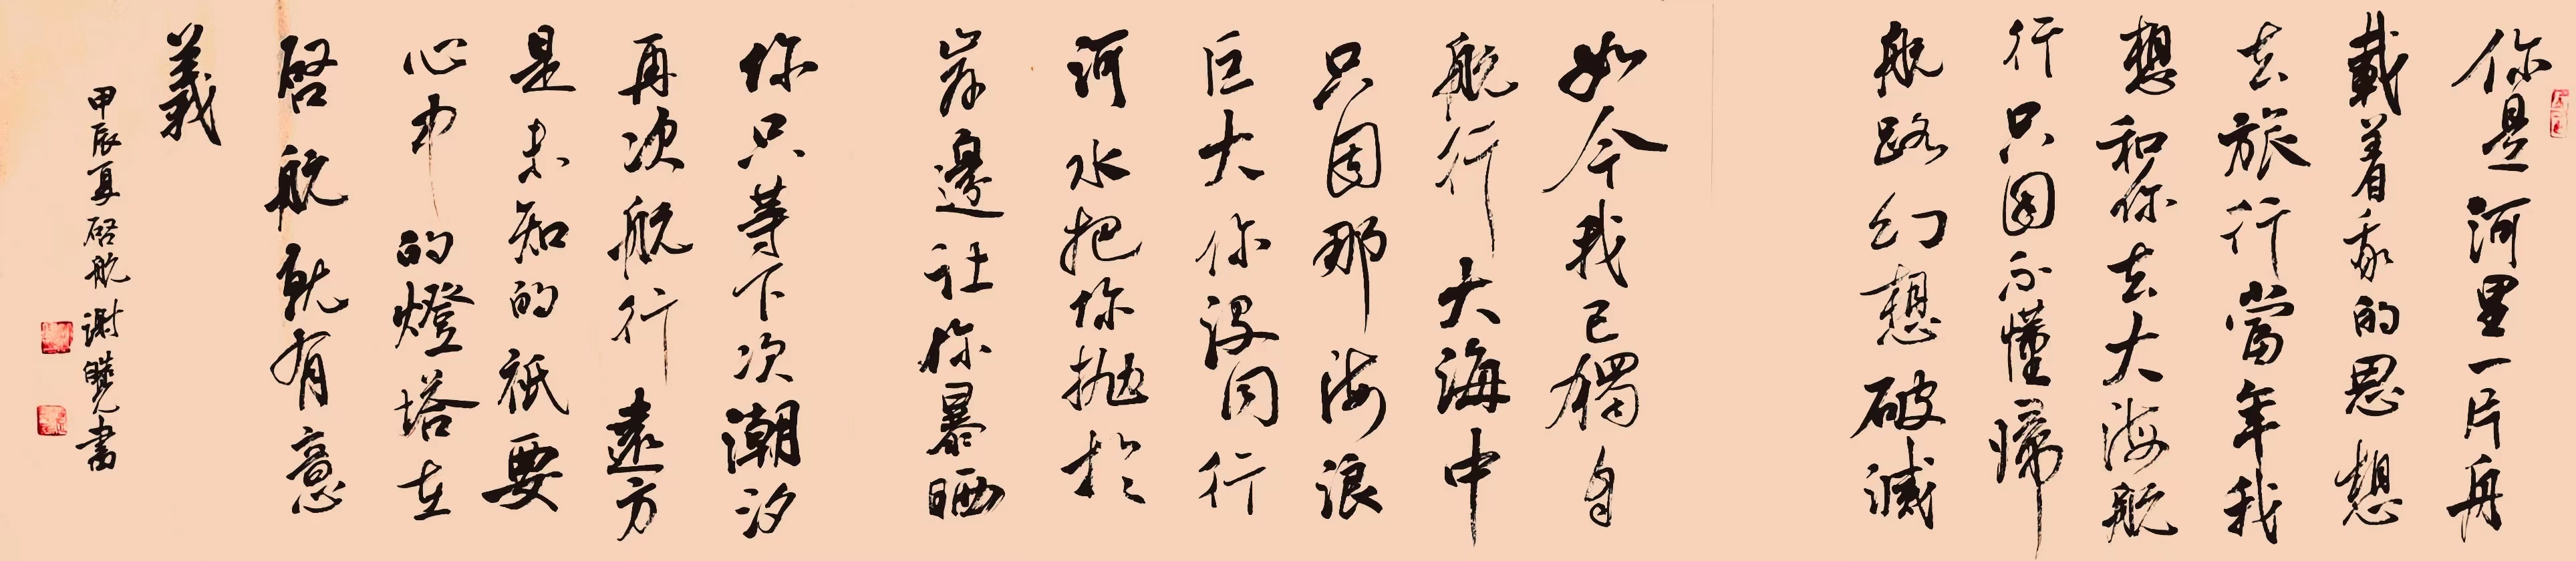 你是一河里一片舟
載着我的思想
去旅行當年我
想和你去大海航
行只因不懂歸
航路幻想破滅
如今我已獨自
航行大海中
只因那海浪
巨大你沒同行
河水把你拋於
岸邊让你暴晒
你只等下次潮汐
再次航行遠方
是未知的祇要
心中的燈塔在
啓航就有意
義
甲辰夏啓航謝曉書